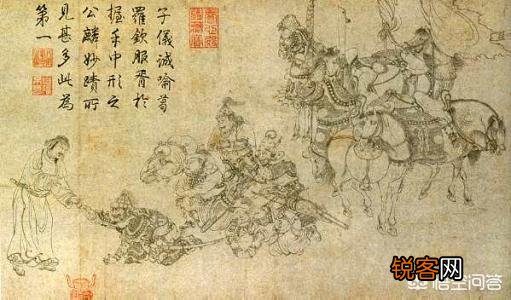 子儀誠喻葛
羅欽服胥於
握手中形之
公麟妙蹟所
見甚多此為
第一
锐客网
悟空问答